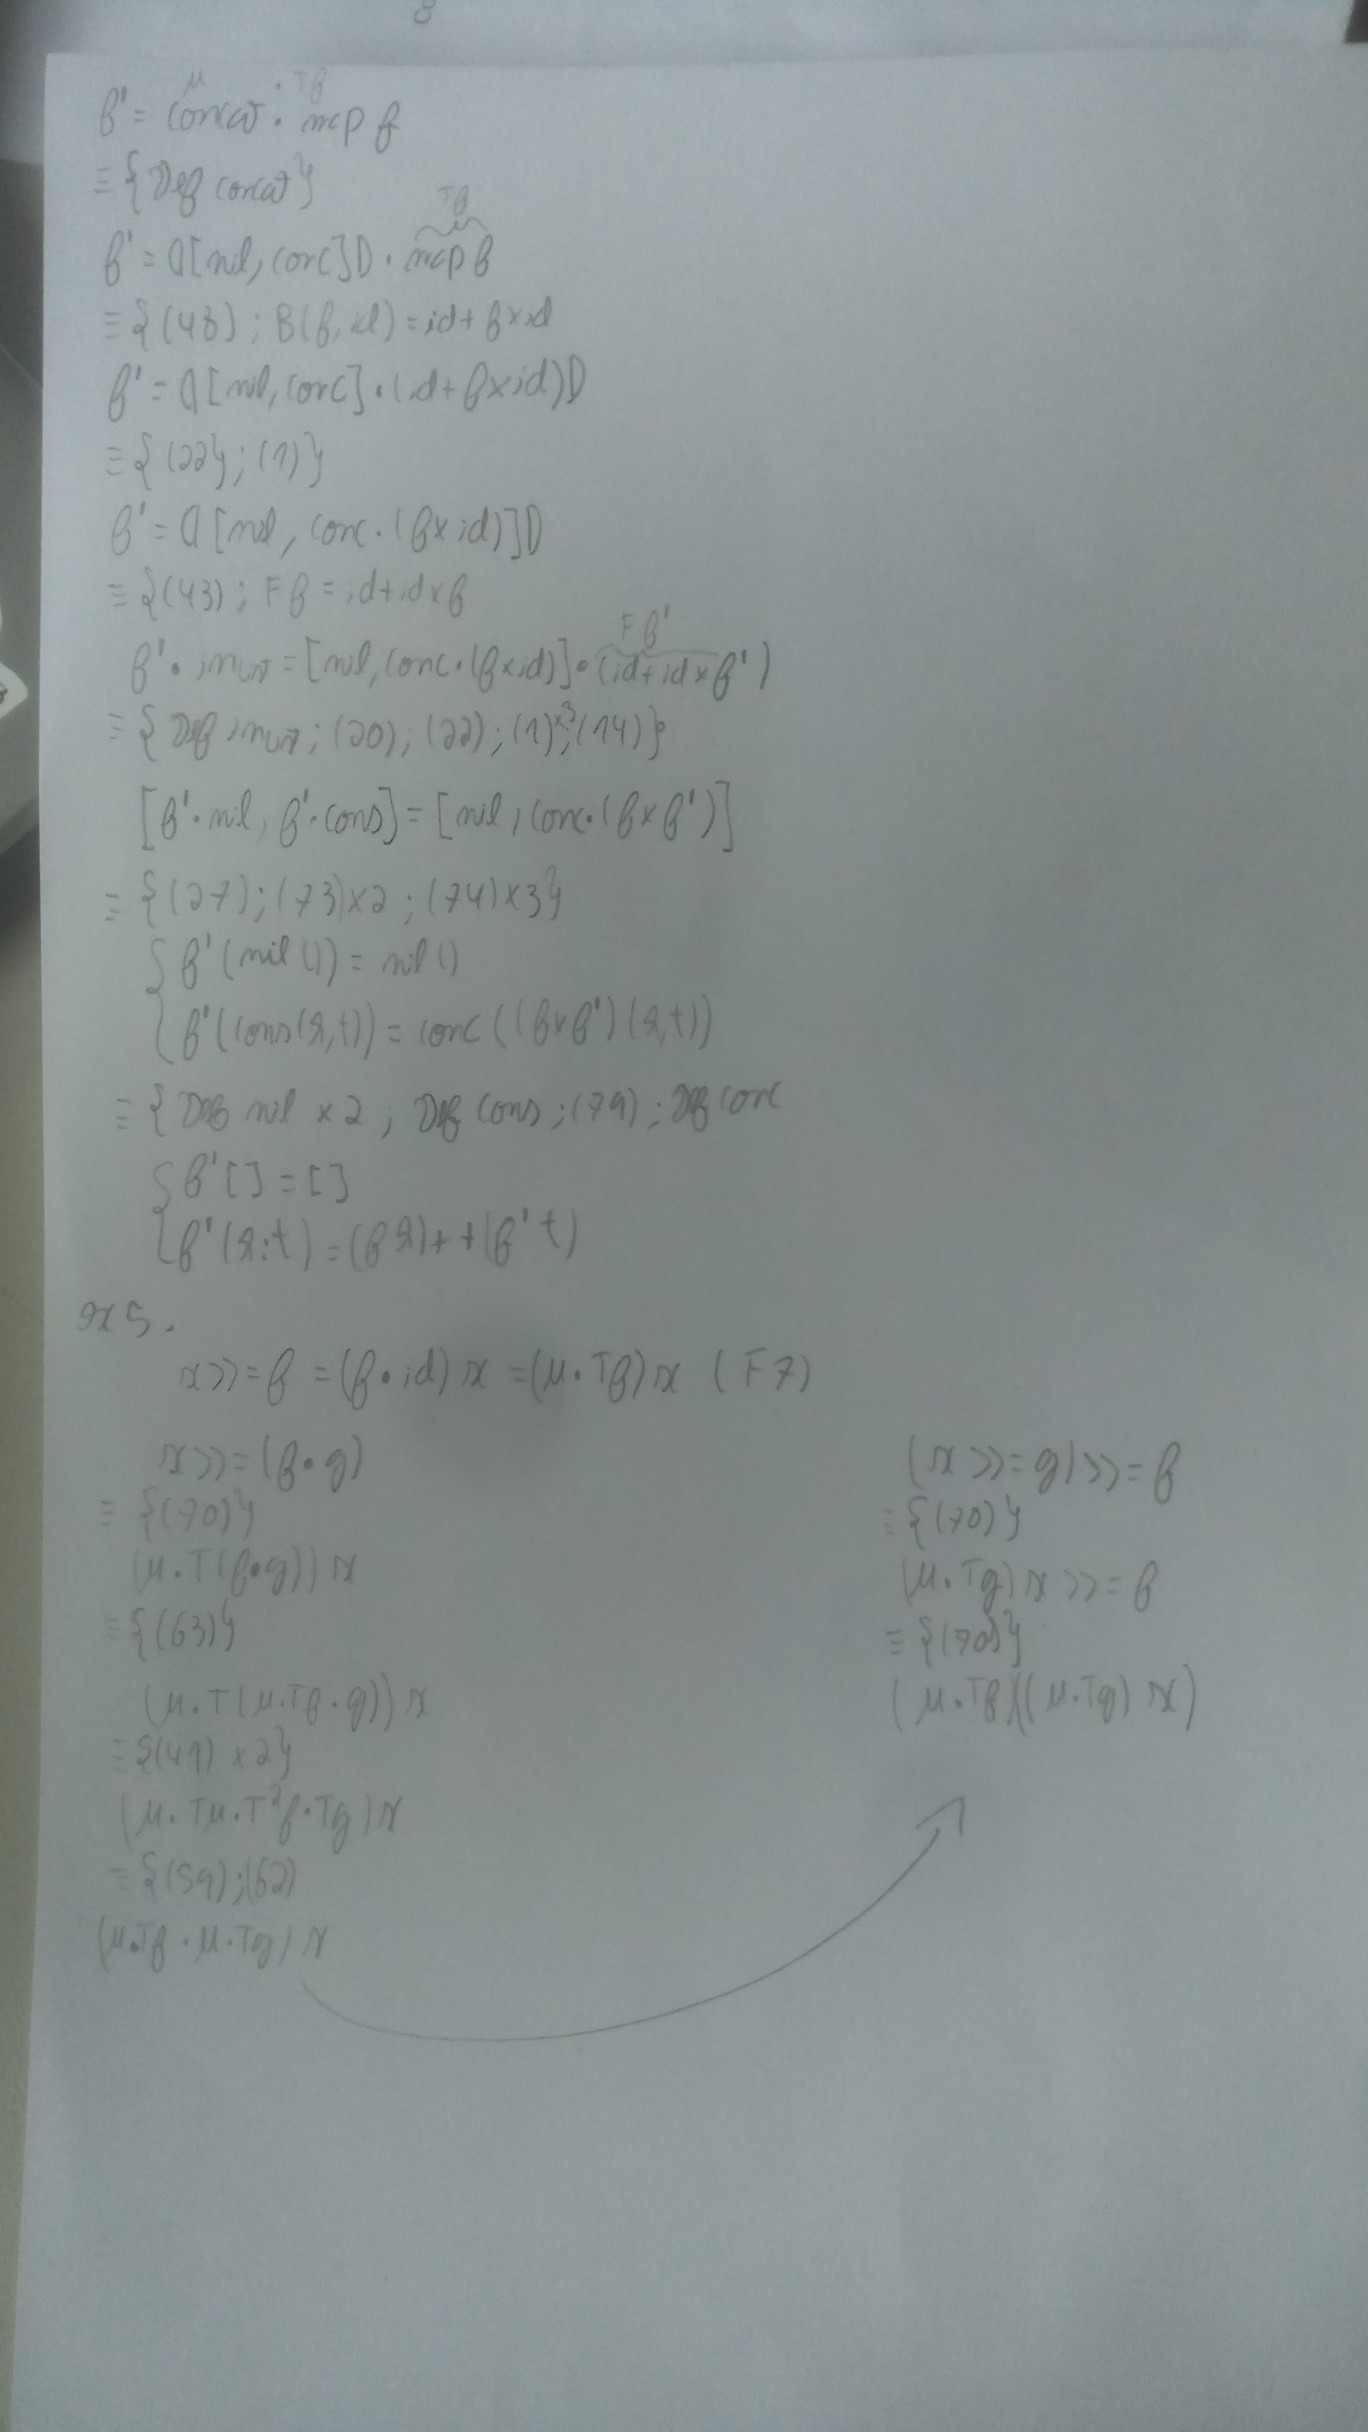 8
μ · Tf
f' = concat · map f
≡ {Def concat}
Tf
f' = ⦇[nil, conc]⦈ · map f
≡ {(48); B(f, id) = id + f × id
f' = ⦇[nil, conc] · (id + f × id)⦈
≡ {(22); (1)}
f' = ⦇[nil, conc · (f × id)]⦈
≡ {(43); F f = id + id × f
F f'
f' · inNat = [nil, conc · (f × id)] · (id + id × f')
≡ {Def inNat; (20); (22); (1)×3; (14)}
[f' · nil, f' · cons] = [nil, conc · (f × f')]
≡ {(27); (73)×2; (74)×3}
{ f'(nil ()) = nil ()
f'(cons(h,t)) = conc((f × f')(h,t))
≡ {Def nil × 2; Def cons; (79); Def conc
{ f' [] = []
f'(h:t) = (f h) ++ (f' t)
ex 5.
x >>= f = (f • id) x = (μ · Tf) x (F7)
x >>= (f • g)
≡ {(70)}
(μ · T(f • g)) x
≡ {(63)}
(μ · T(μ · Tf · g)) x
≡ {(41) × 2}
(μ · Tμ · T²f · Tg) x
≡ {(59); (62)
(μ · Tf · μ · Tg) x
(x >>= g) >>= f
≡ {(70)}
(μ · Tg) x >>= f
≡ {(70)}
(μ · Tf)((μ · Tg) x)